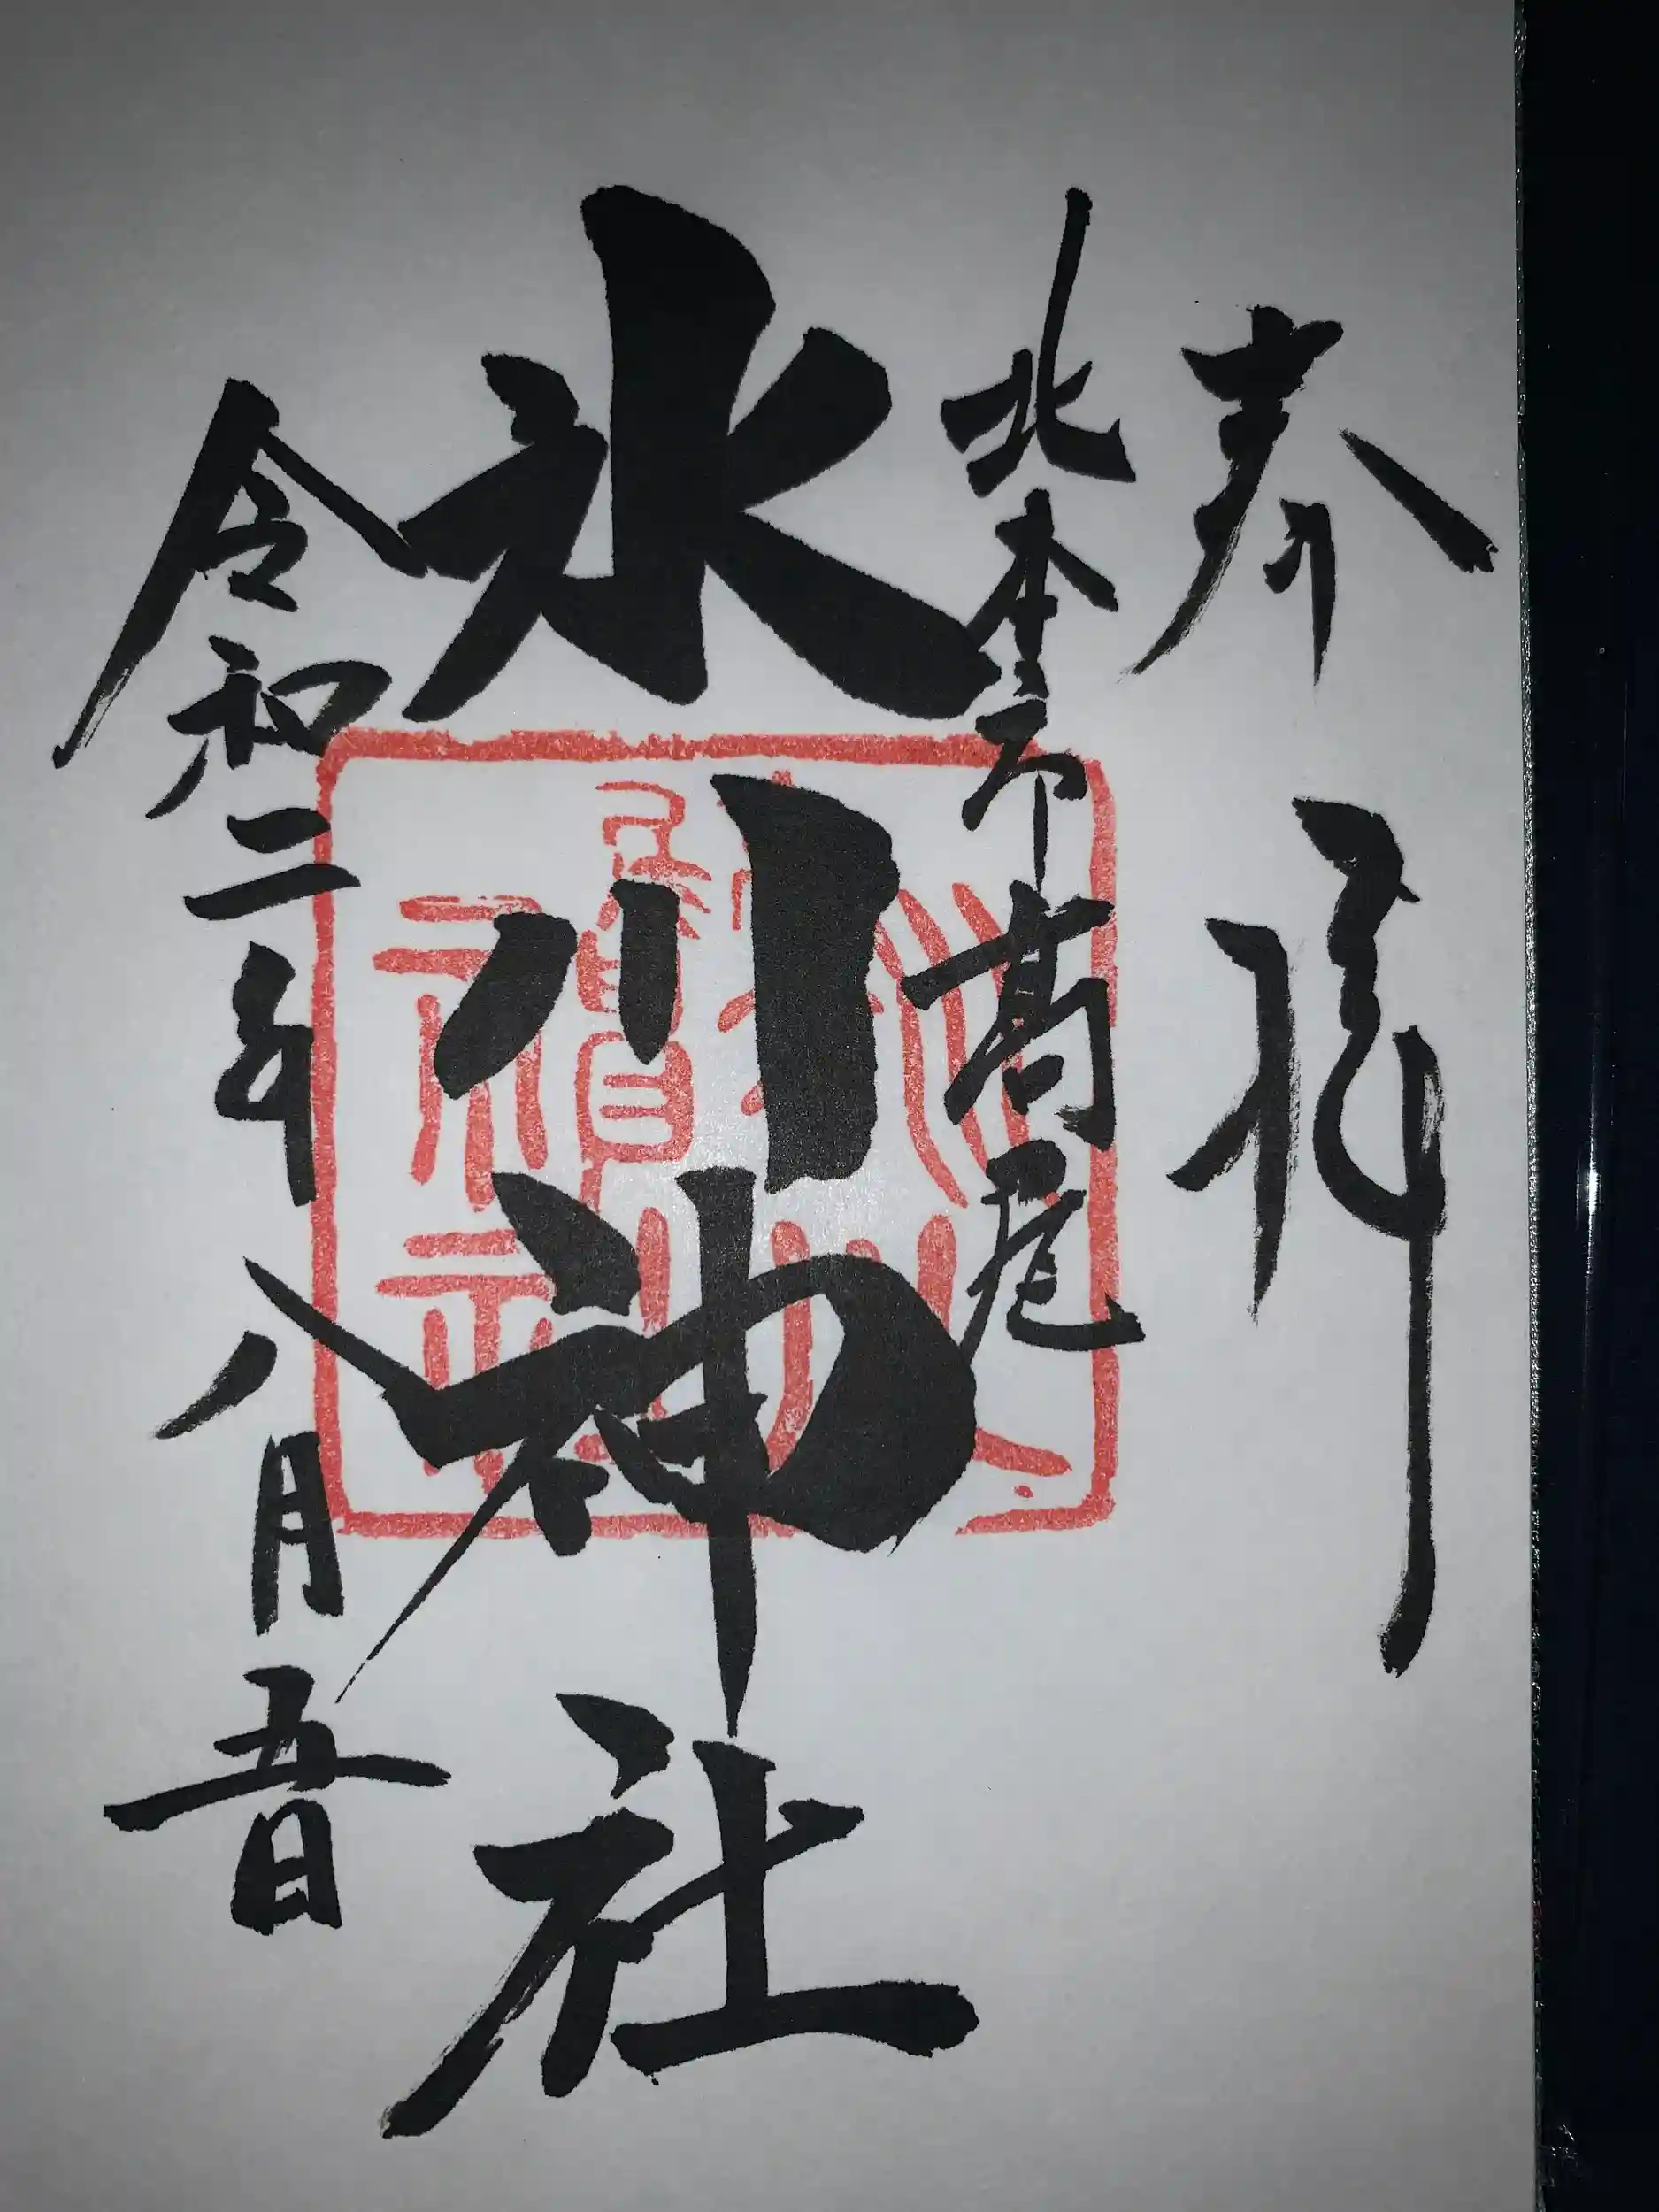 奉拝
北本市高尾
氷川神社
令和二年八月五日